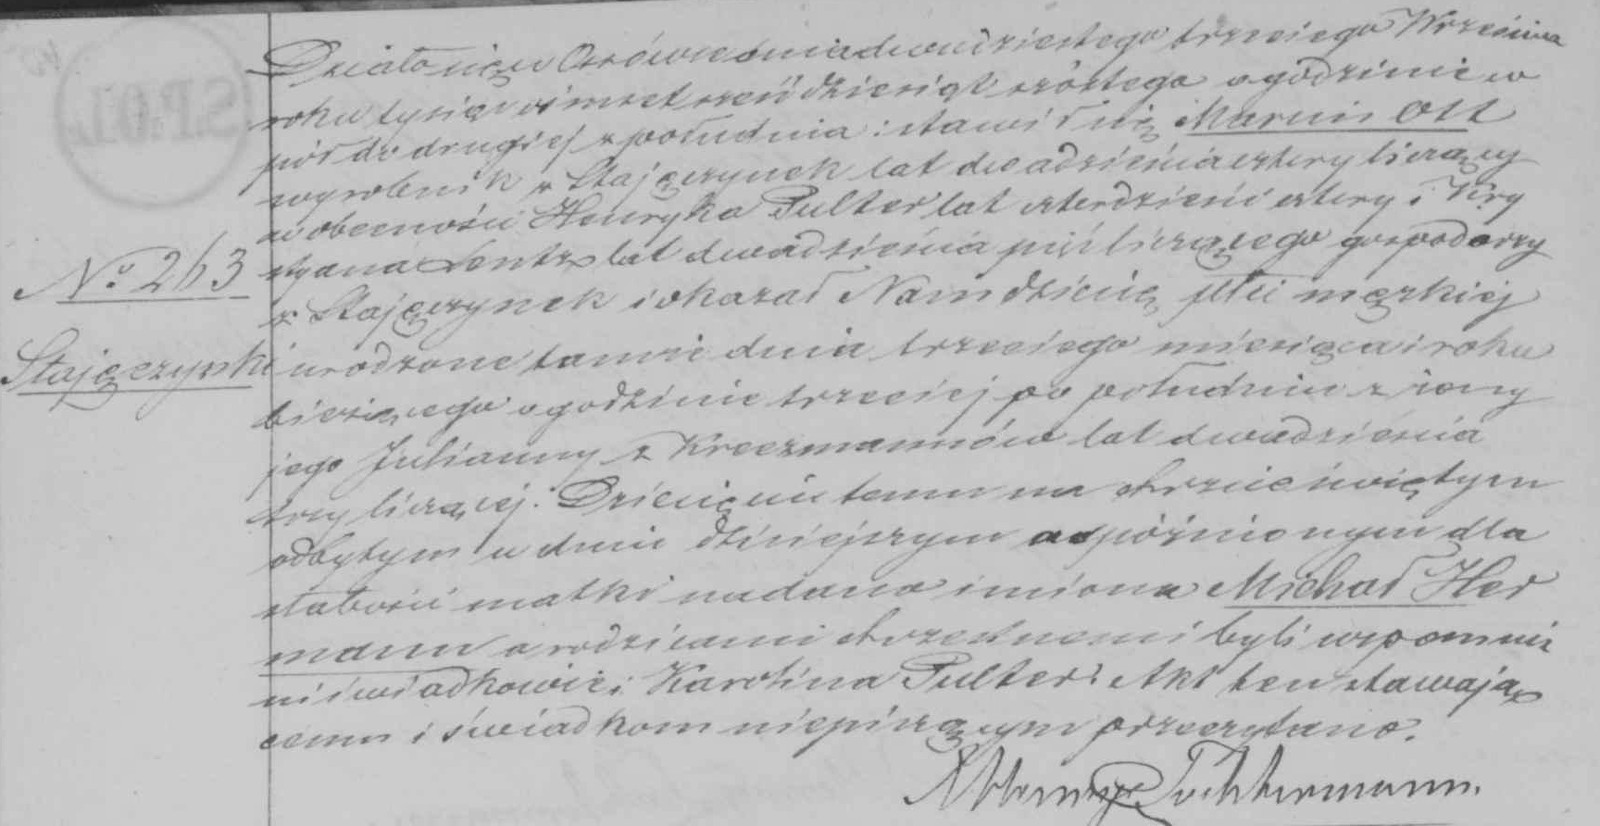 Działo się w Ossówce dnia dwudziestego trzeciego Września
roku tysiąc ośmset sześćdziesiąt szóstego o godzinie w
pół do drugiej z południa: stawił się Marcin Ott
wyrobnik z Stajęczynek lat dwadzieścia cztery liczący
w obecności Henryka Pulter lat czterdzieści cztery i Kry
styana Lentz lat dwadzieścia pięć liczącego gospodarzy
z Stajęczynek i okazał Nam dziecię płci męzkiej
urodzone tamże dnia trzeciego miesiąca i roku
bieżącego o godzinie trzeciej po południu z żony
jego Julianny z Kreczmannów lat dwadzieścia
trzy liczącej. Dziecięciu temu na chrzcie świętym
odbytym w dniu dzisiejszym opóźnionym dla
słabości matki nadano imiona Michał Her
mann a rodzicami chrzestnemi byli wspomnie
ni świadkowie i Karolina Pulter. Akt ten stawają
cemu i świadkom niepiszącym przeczytano.
No. 263
Stajęczynki
SPOL